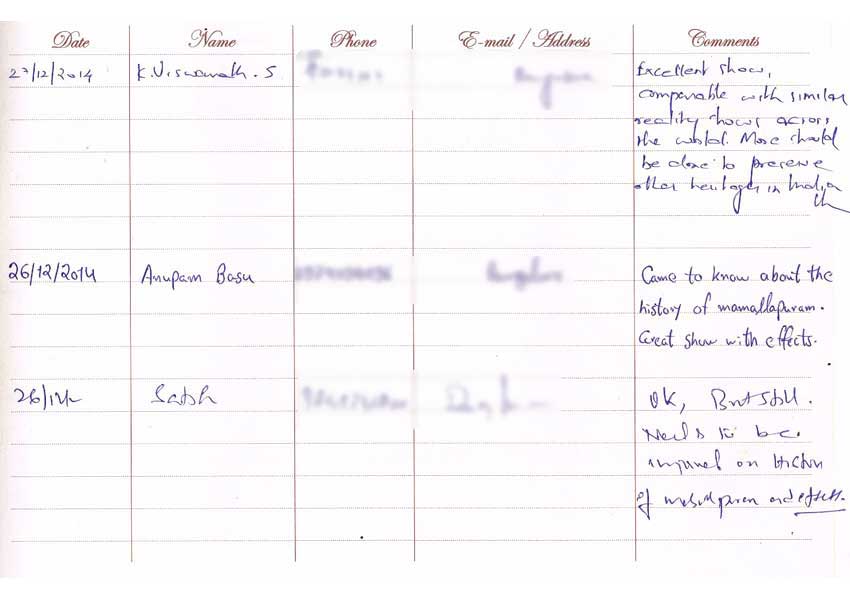 Date Name Phone E-mail / Address Comments
27/12/2014 K. Viswanath. S Excellent show,
comparable with similar
reality shows across
the world. More should
be done to preserve
other heritages in India
26/12/2014 Anupam Basu Came to know about the
history of mamallapuram.
Great show with effects.
26/12 Satish OK, But still.
Needs to be
improved on history
of and effects.